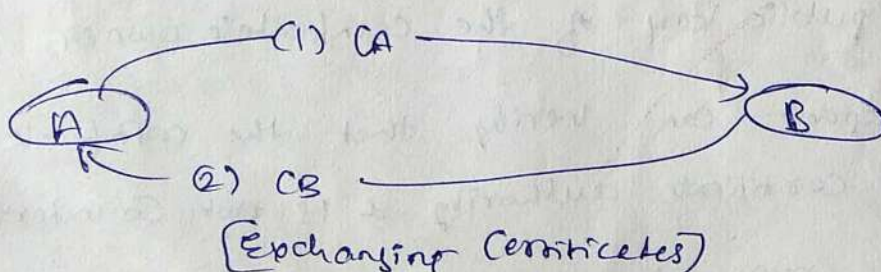 (1) CA
A
B
(2) CB
[Exchanging Certificates]